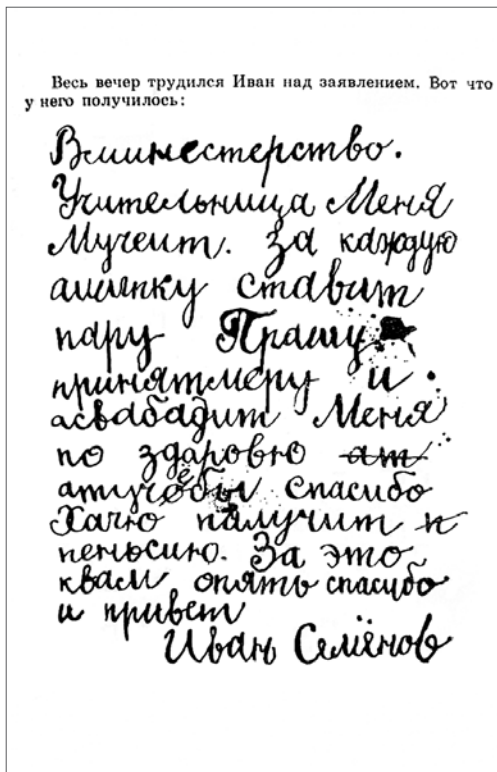 Весь вечер трудился Иван над заявлением. Вот что
у него получилось:
Вминестерство.
Учительница Меня
Мучеит. За каждую
ашыпку ставит
пару Прашу
принятмеру и
асвабадит Меня
по здаровю ат
атучёбы спасибо
Хачю палучит п
пеньсию. За это
квам опять спасибо
и привет
Иван Семёнов